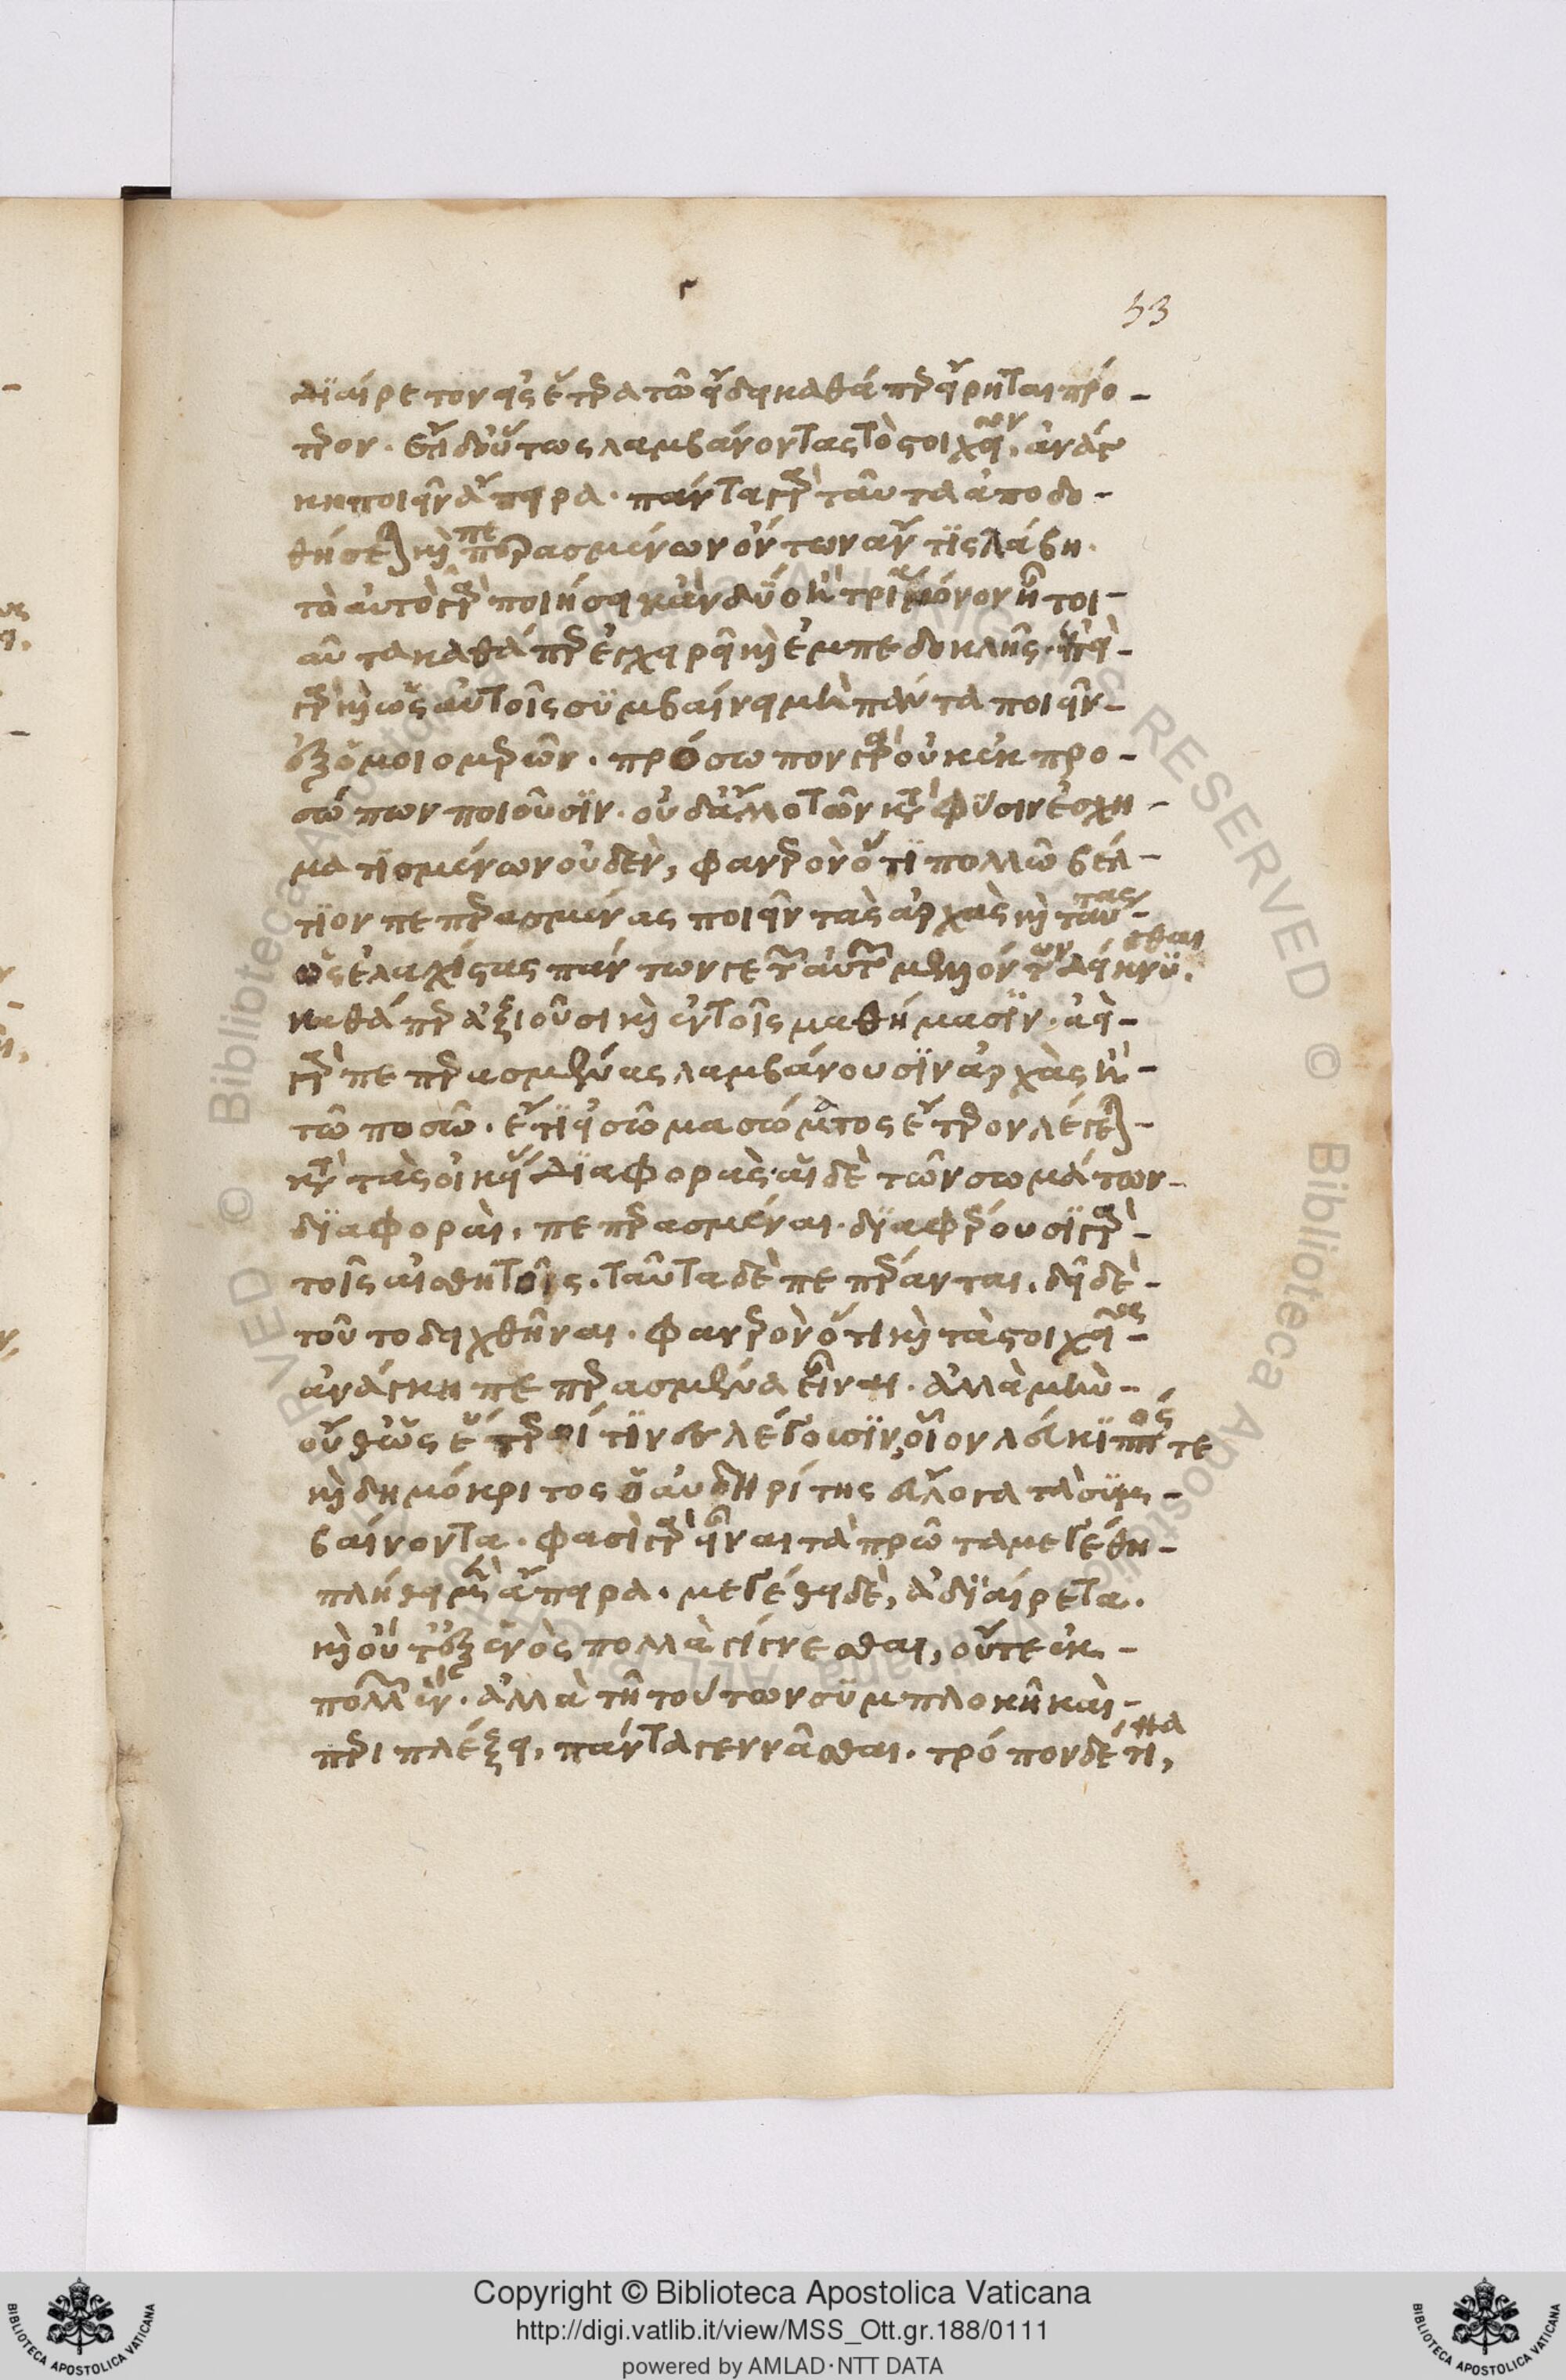 ϛ
53
διαίρετον εἰς ἕτερα τῶ εἴδει καθάπερ εἴρηται πρό-
τερον. ἔτι δ' οὕτως λαμβάνοντας τὸ στοιχεῖον, ἀνάγ
κη ποιεῖν ἄπειρα. πάντα γὰρ ταῦτα ἀποδο-
θήσεται καὶ πεπερασμένων ὄντων ἄν τις λάβη.
τὸ αὐτὸ γὰρ ποιήσει κἂν δύο ἢ τρία μόνον ἦ τοι-
αῦτα καθάπερ ἐγχειρεῖ καὶ ἐμπεδοκλῆς. ἐπεὶ-
γὰρ καὶ ὡς αὐτοῖς συμβαίνει μὴ πάντα ποιεῖν-
ἐξ ὁμοιομερῶν. πρόσωπον γὰρ οὐκ ἐκ προ-
σώπων ποιοῦσιν. οὐδ' ἄλλο τῶν κατὰ φύσιν ἐσχη-
ματισμένων οὐδὲν, φανερὸν ὅτι πολλῶ βέλ-
τιον πεπερασμένας ποιεῖν τὰς ἀρχὰς καὶ ταύτας-
ὡς ἐλαχίστας πάντων γε τῶν αὐτῶν μελλόντων δείκνυσθαι.
καθάπερ ἀξιοῦσι καὶ ἐν τοῖς μαθήμασιν. ἀεὶ-
γὰρ πεπερασμένας λαμβάνουσιν ἀρχὰς ἢ-
τῶ ποσῶ. ἔτι εἰ σῶμα σώματος ἕτερον λέγεται-
κατὰ τὰς οἰκείας διαφορὰς. αἱ δὲ τῶν σωμάτων-
διαφοραὶ, πεπερασμέναι. διαφέρουσι γὰρ-
τοῖς αἰσθητοῖς. ταῦτα δὲ πεπέρανται. δεῖ δὲ-
τοῦτο δειχθῆναι. φανερὸν ὅτι καὶ τὰ στοιχεῖα-
ἀνάγκη πεπερασμένα εἶναι. ἀλλὰ μὴν-
οὐδ' ὡς ἕτεροί τινες λέγουσιν, οἷον λεύκιππός τε
καὶ δημόκριτος ὁ αὐδηρίτης εὔλογα τὰ συμ-
βαίνοντα. φασὶ γὰρ εἶναι τὰ πρῶτα μεγέθη-
πλήθει μὲν ἄπειρα. μεγέθει δὲ, ἀδιαίρετα.
καὶ οὔτ' ἐξ ἑνὸς πολλὰ γίγνεσθαι, οὔτε ἐκ-
πολλῶν ἕν. ἀλλὰ τῆ τούτων συμπλοκῆ καὶ-
περιπλέξει, πάντα γεννᾶσθαι. τρόπον δέ τινα,
Copyright © Biblioteca Apostolica Vaticana
http://digi.vatlib.it/view/MSS_Ott.gr.188/0111
powered by AMLAD·NTT DATA